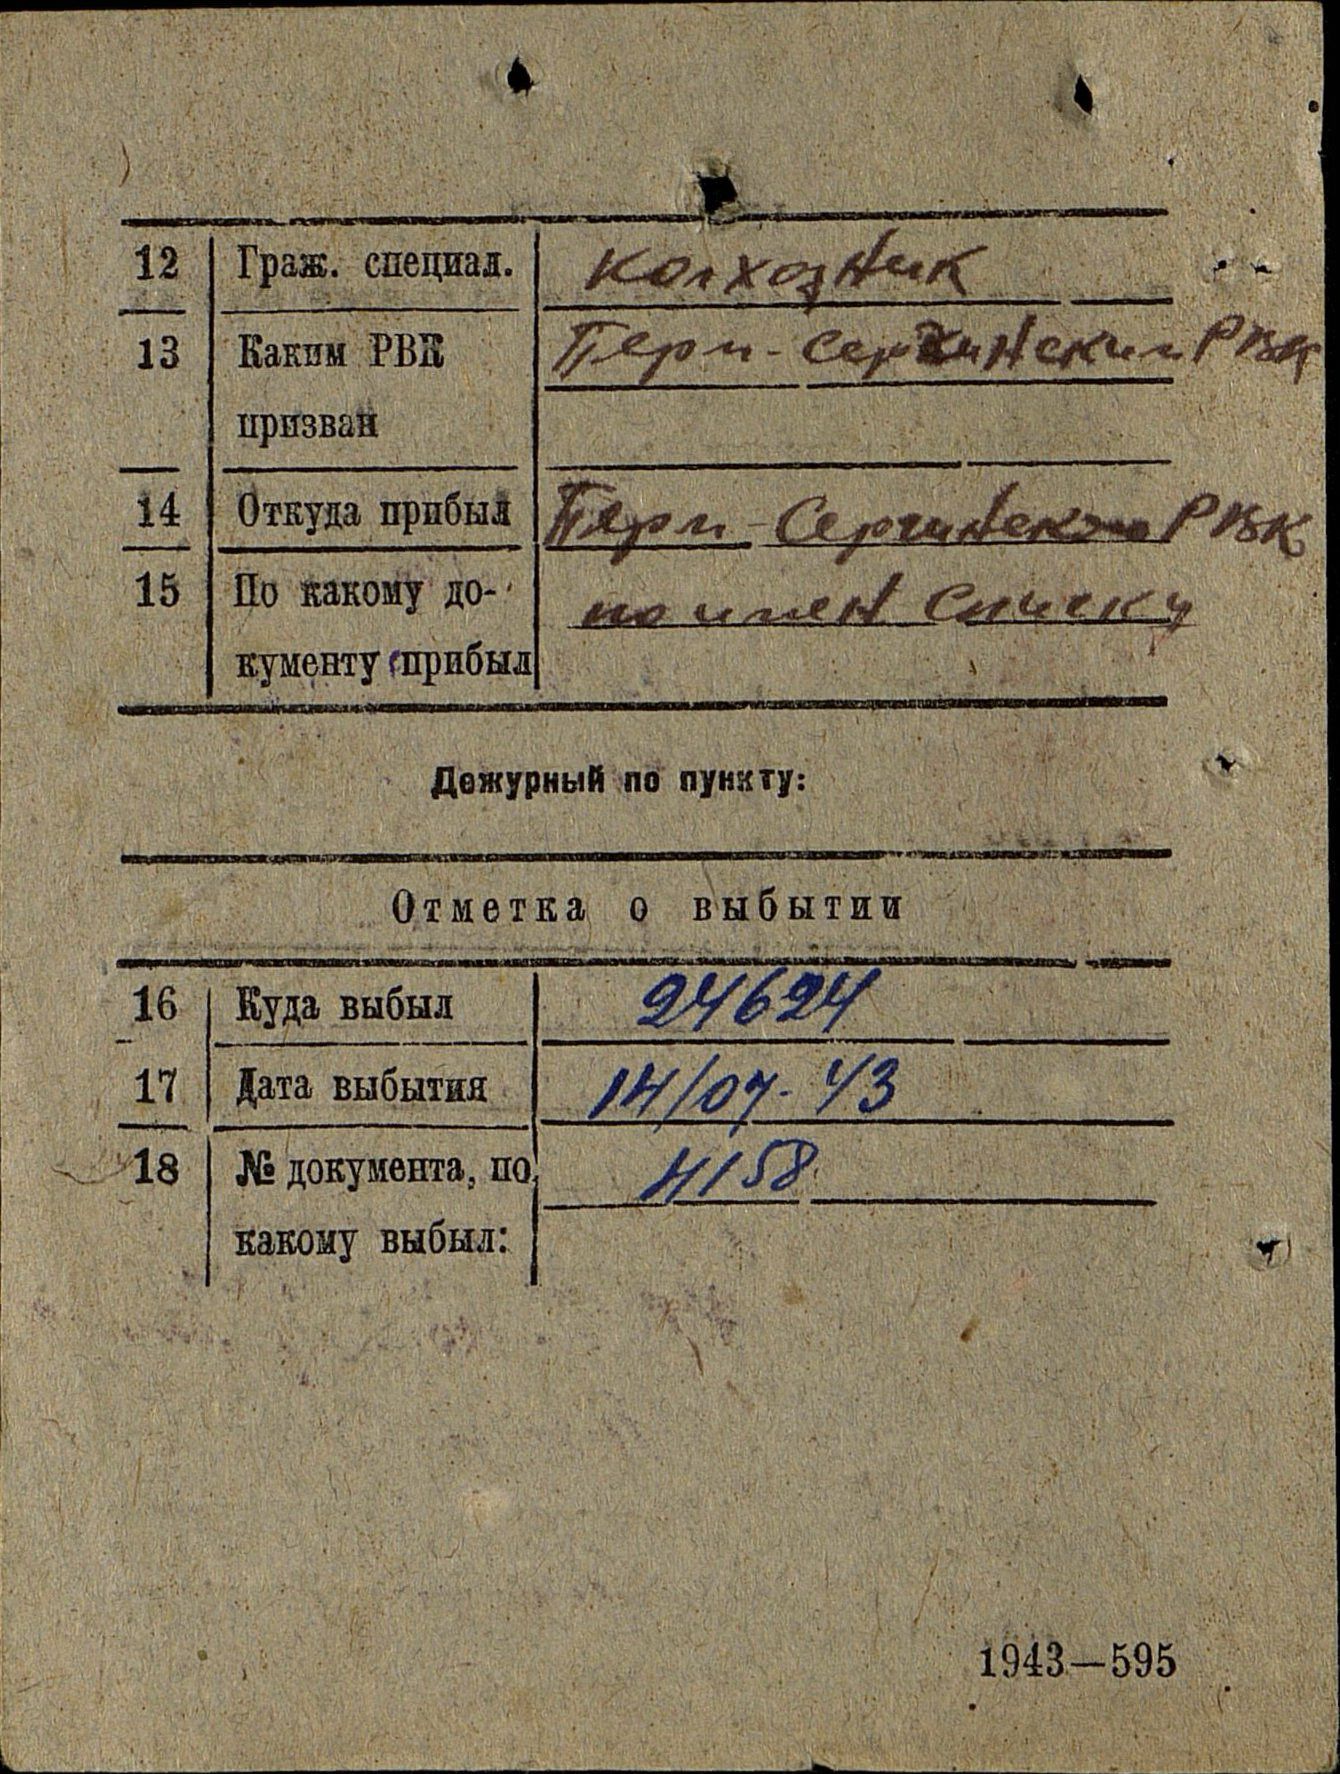 12 Граж. специал. колхозник
13 Каким РВК Перм-Сергинским РВК
призван
14 Откуда прибыл Перм-Сергинского РВК
15 По какому до- по имен списку
кументу прибыл
Дежурный по пункту:
Отметка о выбытии
16 Куда выбыл 24624
17 Дата выбытия 14/07-43
18 № документа, по 4158
какому выбыл:
1943—595